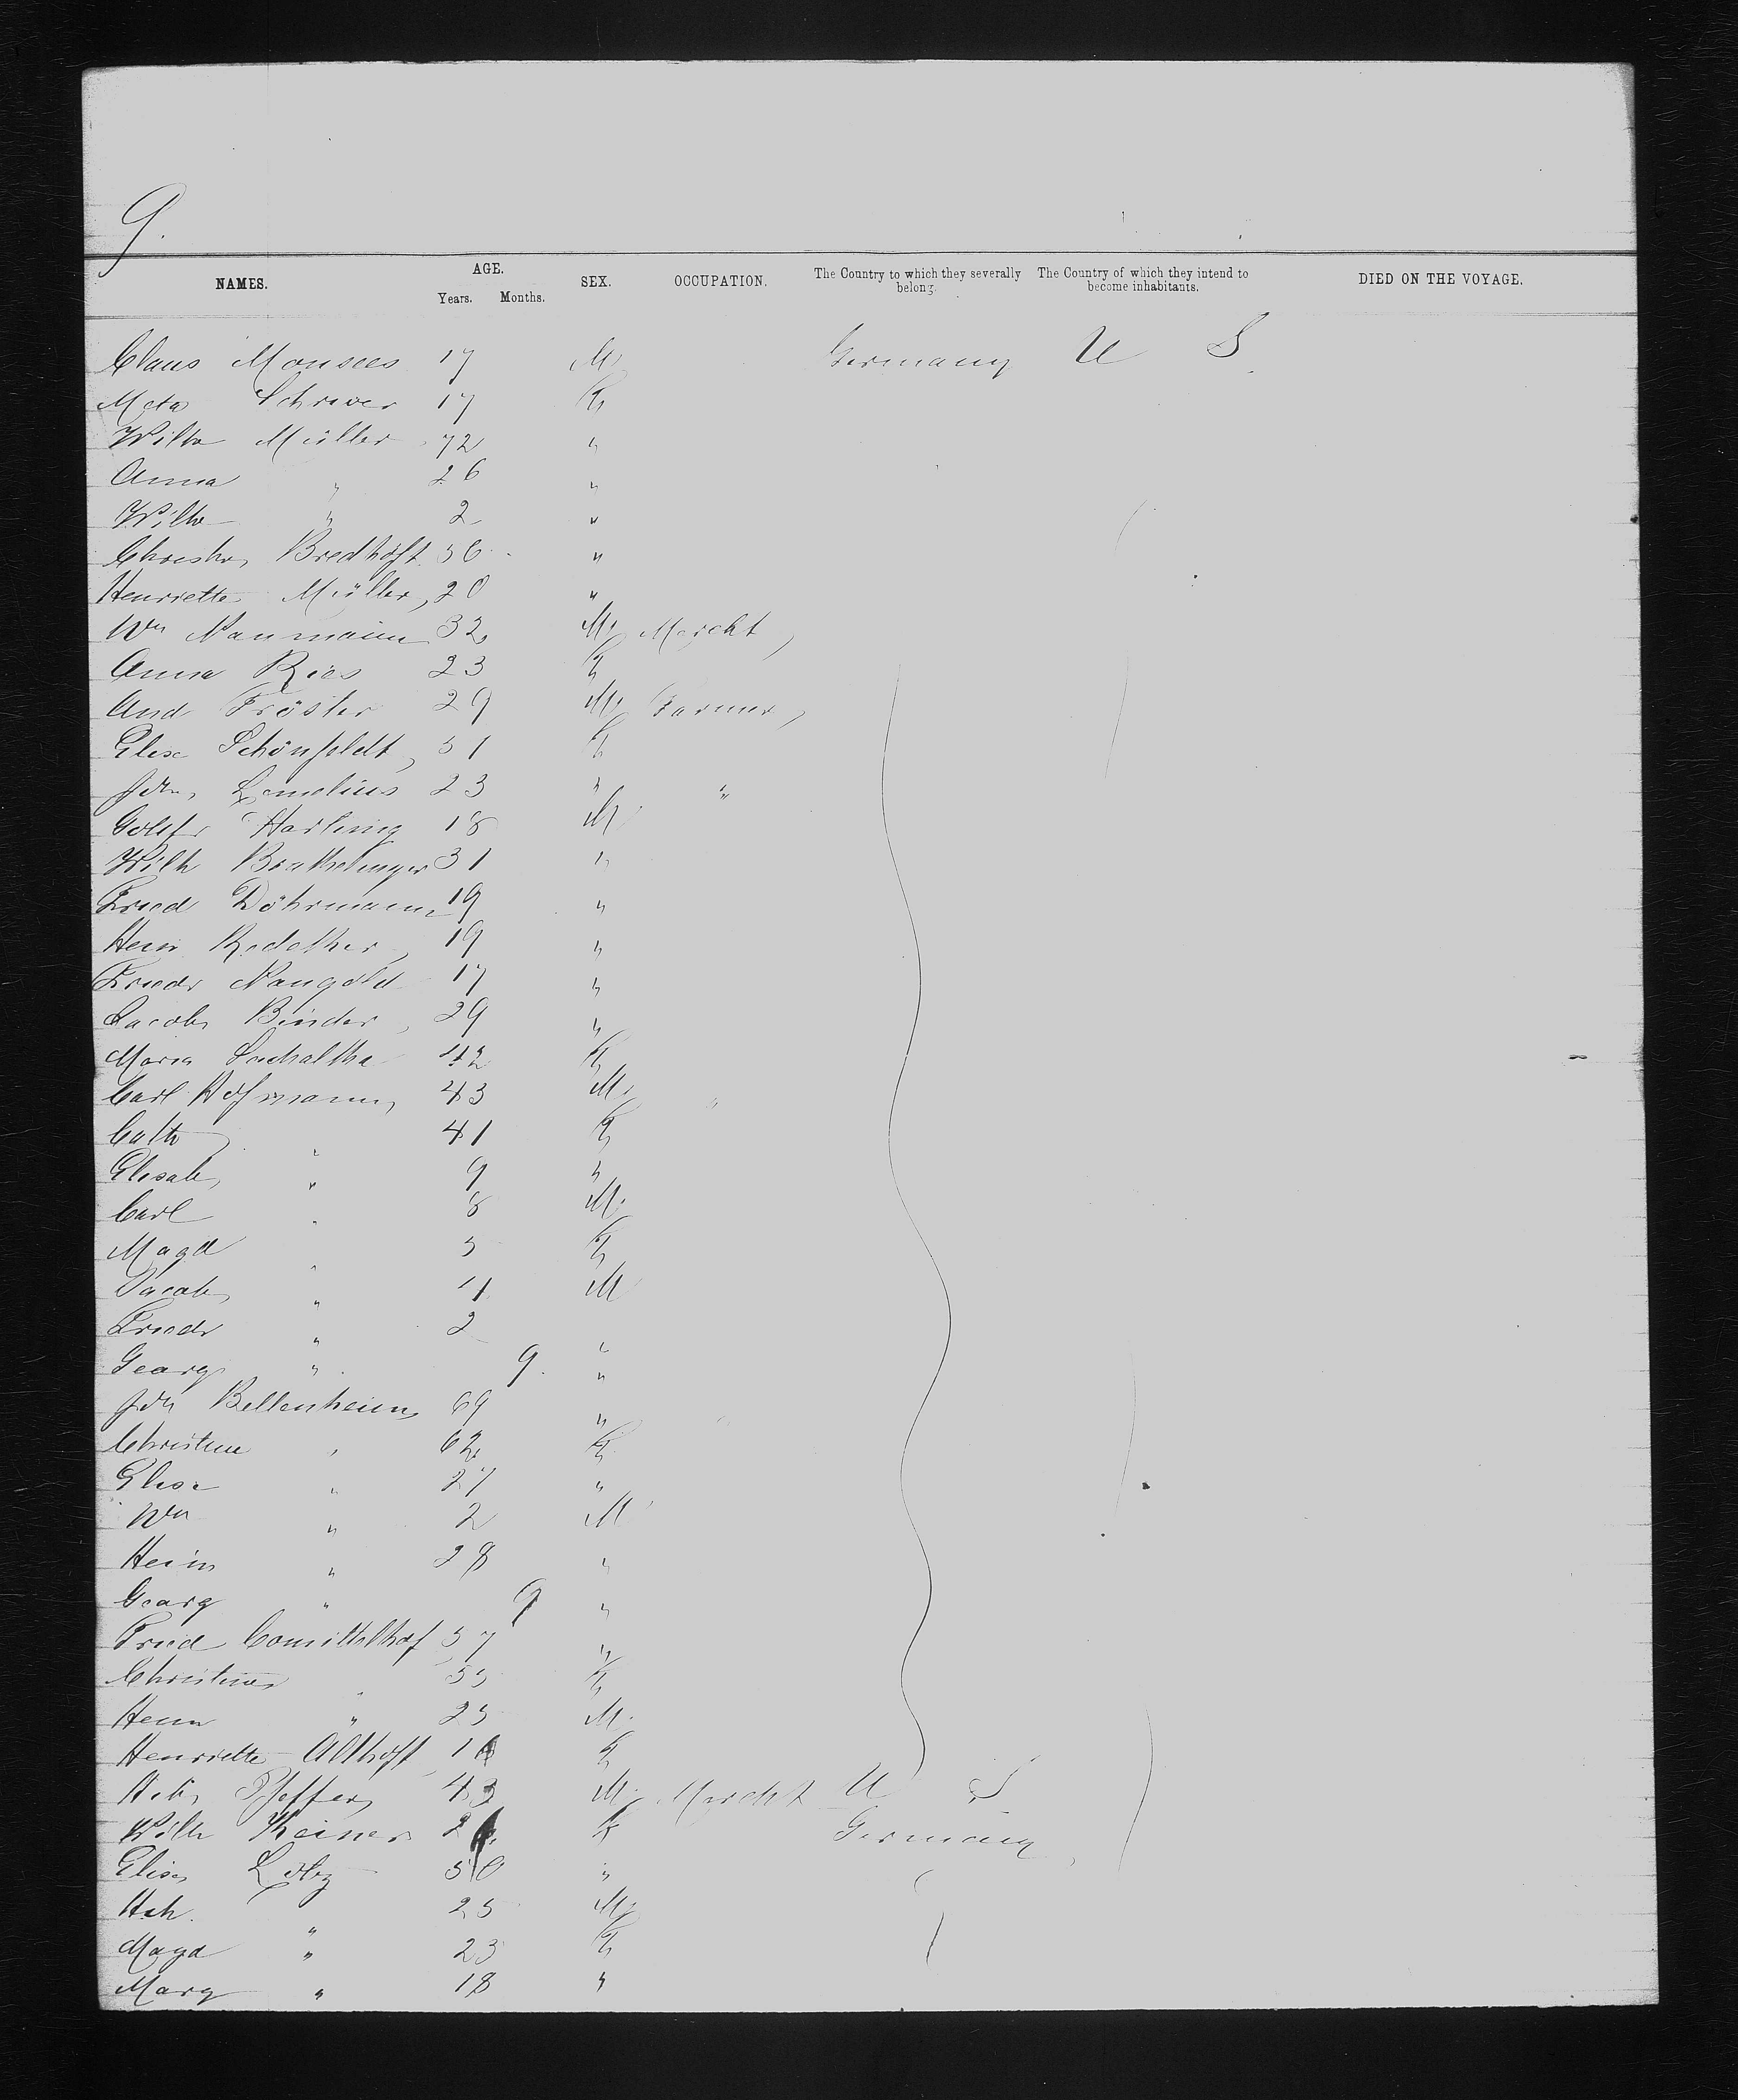 9.
NAMES. AGE. Years. Months. SEX. OCCUPATION. The Country to which they severally belong. The Country of which they intend to become inhabitants. DIED ON THE VOYAGE.
Claus Monsees 17 M Germany U S
Meta Schriver 17 F
Wilhe Müller 72 "
Anna " 26 "
Wilhe " 2 "
Bredhöft 36 "
Henriette Müller, 20 "
Wm Naumann 32 M Mercht,
Anna Ries 23 F
And Fröster 29 M Farmer,
Elise Schönfeldt, 51 F
Joh, 23 " "
Gottfr Harling 18 M
Wilh 31 "
Fried Döhrmann 19 "
Heinr 19 "
Friedr Nangold 17 "
Jacob Binder, 29 "
Maria 42 F
Carl Hofmann, 43 M "
Cath " 41 F
Elisab, " 9 "
Carl " 8 M
Magd " 5 F
Jacob " 4 M
Friedr " 2 "
Georg " 9. "
Joh Bellenheim, 69 "
Christine " 62 F
Elise " 27 "
Wm " 2 M
Heinr " 28 "
Georg " 9 "
Fried 57 "
Christine " 55 F
Heinr " 25 M
Henriette Althoff, F
Pfeffer, 43 M Mercht U S
Wilhe Keiner F Germany
Elise 50 "
Hch. " 25 M
Magd " 23 F
Marg " 18 "